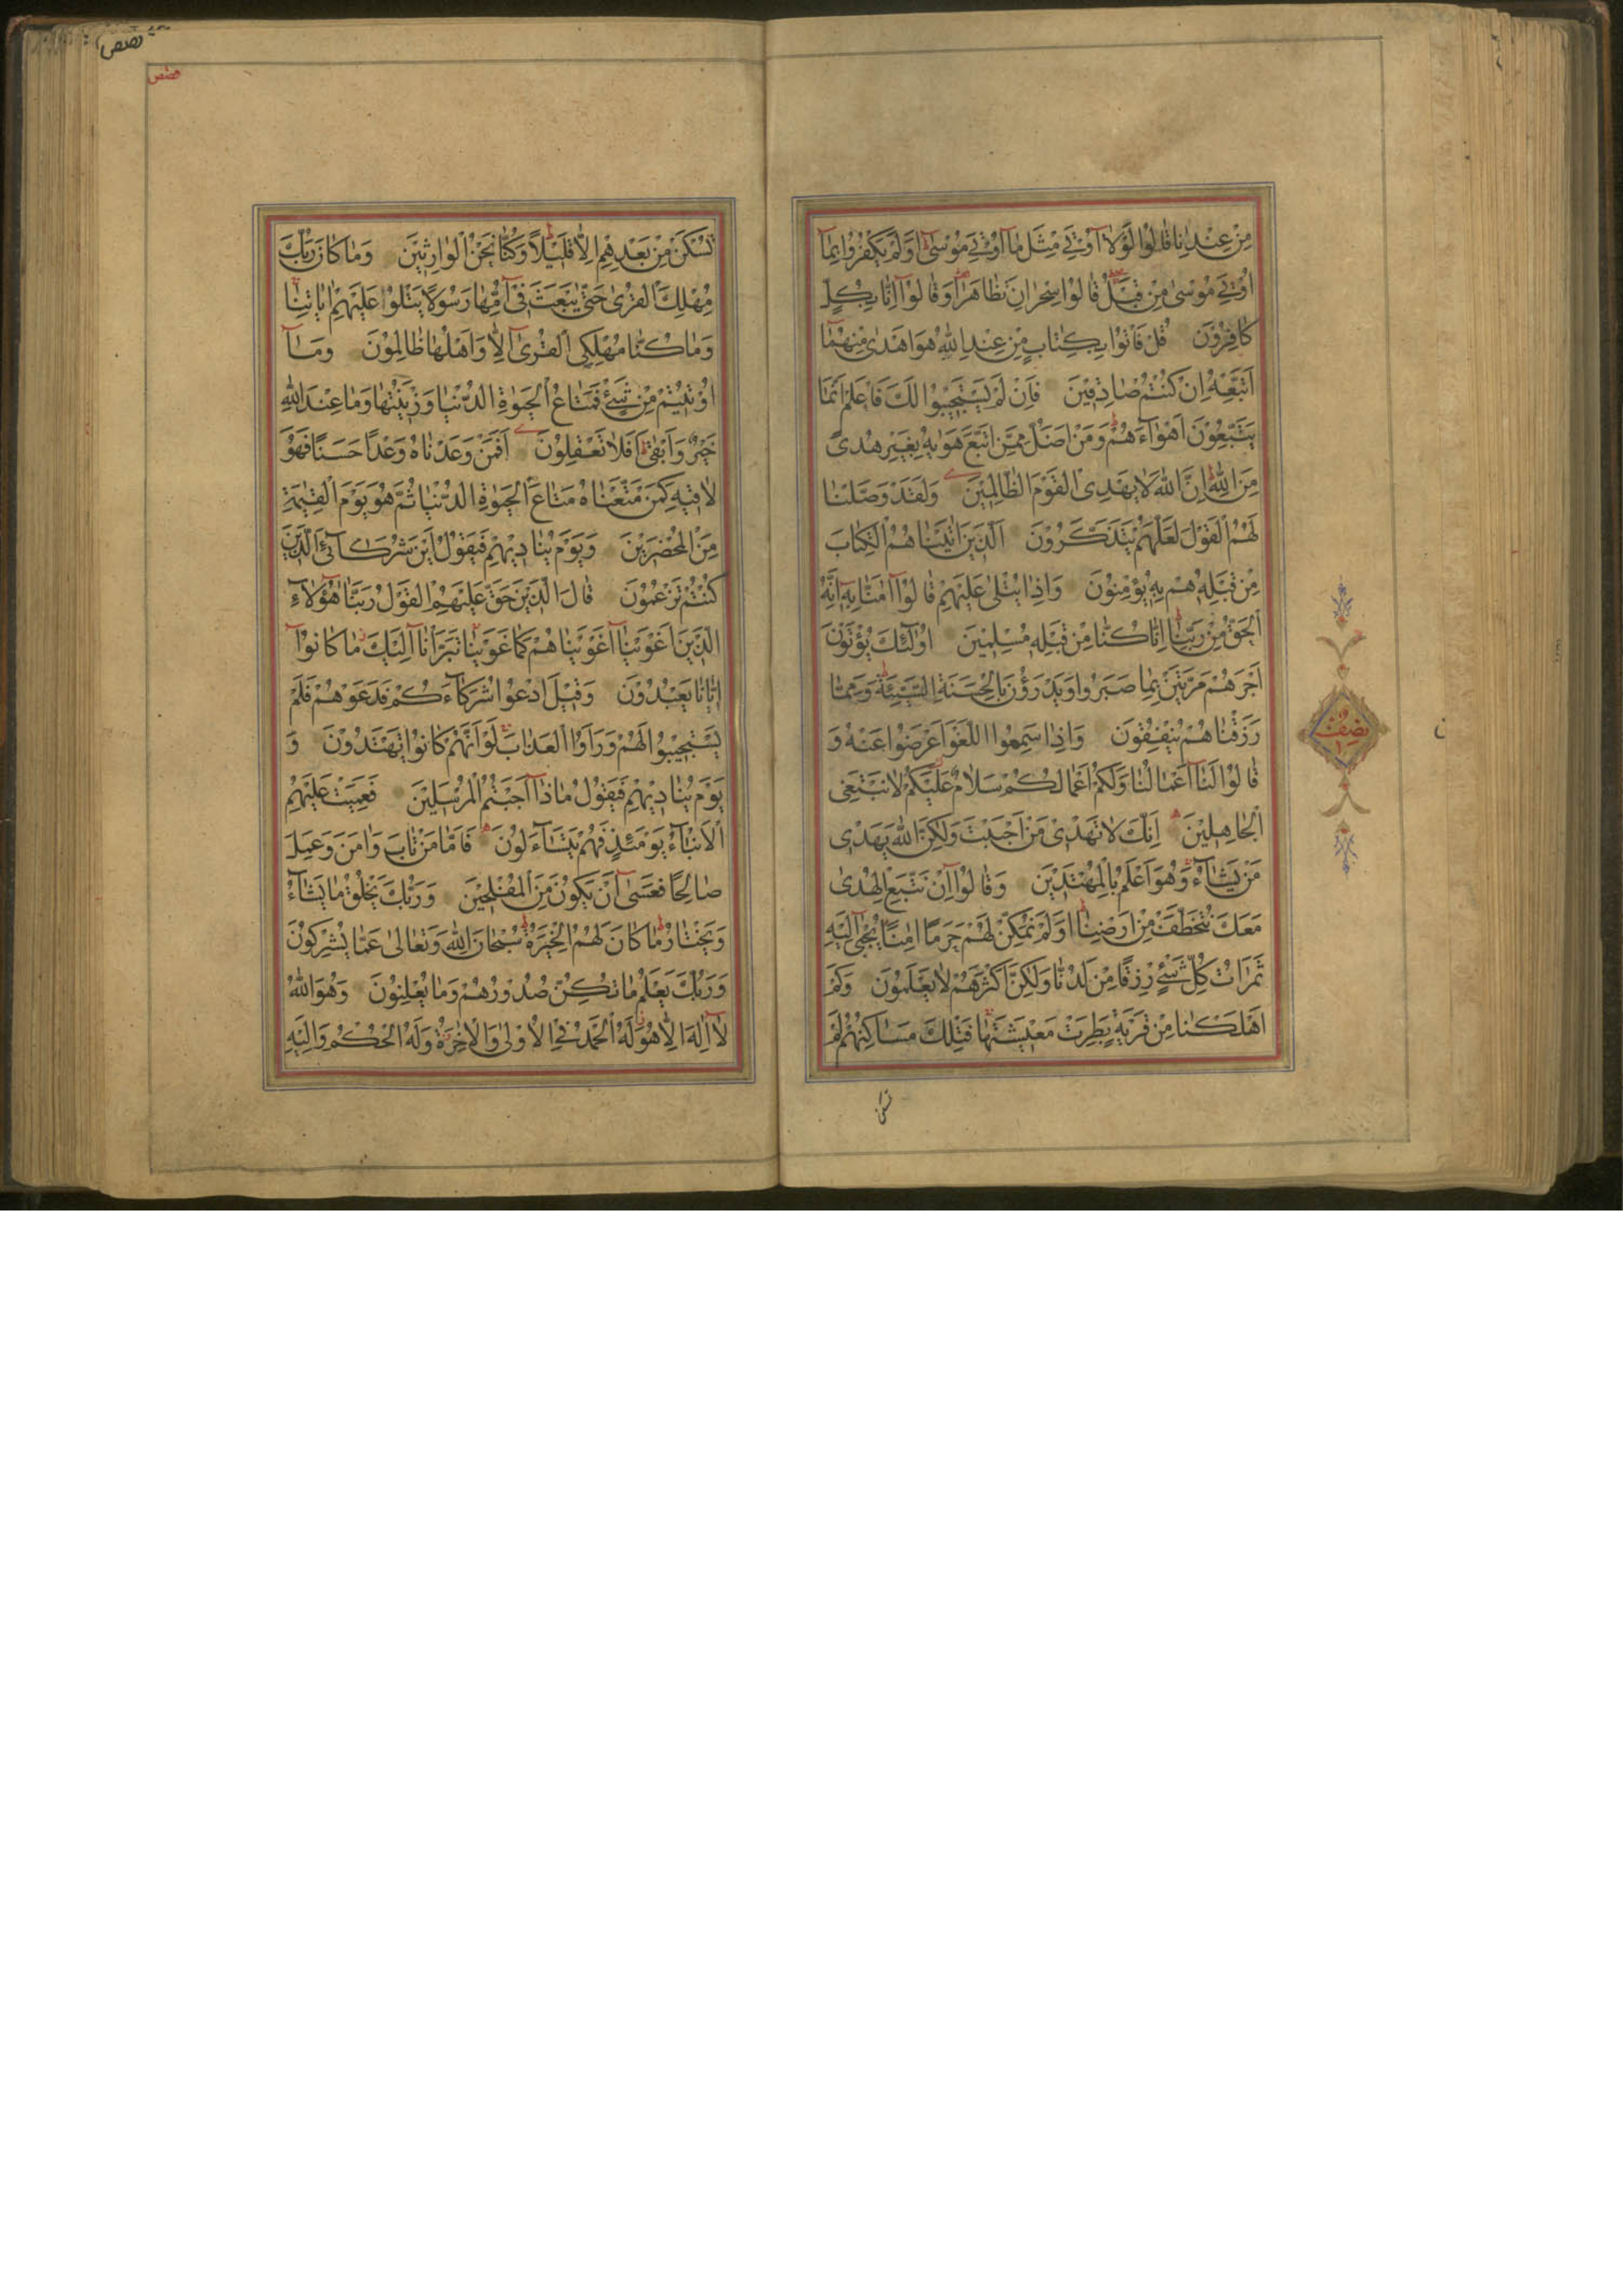 مِنْ عِنْدِنَا قَالُوا لَوْلَا اُوتِيَ مِثْلَ مَا اُوتِيَ مُوسٰى اَوَلَمْ يَكْفُرُوا بِمَا
اُوتِيَ مُوسٰى مِنْ قَبْلُ قَالُوا سِحْرَانِ تَظَاهَرَا وَقَالُوا اِنَّا بِكُلٍّ
كَافِرُونَ قُلْ فَاْتُوا بِكِتَابٍ مِنْ عِنْدِ اللّٰهِ هُوَ اَهْدٰى مِنْهُمَا
اَتَّبِعْهُ اِنْ كُنْتُمْ صَادِقِينَ فَاِنْ لَمْ يَسْتَجِيبُوا لَكَ فَاعْلَمْ اَنَّمَا
يَتَّبِعُونَ اَهْوَاءَهُمْ وَمَنْ اَضَلُّ مِمَّنِ اتَّبَعَ هَوٰيهُ بِغَيْرِ هُدًى
مِنَ اللّٰهِ اِنَّ اللّٰهَ لَا يَهْدِى الْقَوْمَ الظَّالِمِينَ وَلَقَدْ وَصَّلْنَا
لَهُمُ الْقَوْلَ لَعَلَّهُمْ يَتَذَكَّرُونَ اَلَّذِينَ اٰتَيْنَاهُمُ الْكِتَابَ
مِنْ قَبْلِهِ هُمْ بِهِ يُؤْمِنُونَ وَاِذَا يُتْلٰى عَلَيْهِمْ قَالُوا اٰمَنَّا بِهِ اِنَّهُ
الْحَقُّ مِنْ رَبِّنَا اِنَّا كُنَّا مِنْ قَبْلِهِ مُسْلِمِينَ اُولٰئِكَ يُؤْتَوْنَ
اَجْرَهُمْ مَرَّتَيْنِ بِمَا صَبَرُوا وَيَدْرَؤُنَ بِالْحَسَنَةِ السَّيِّئَةَ وَمِمَّا
رَزَقْنَاهُمْ يُنْفِقُونَ وَاِذَا سَمِعُوا اللَّغْوَ اَعْرَضُوا عَنْهُ وَ
قَالُوا لَنَا اَعْمَالُنَا وَلَكُمْ اَعْمَالُكُمْ سَلَامٌ عَلَيْكُمْ لَا نَبْتَغِى
الْجَاهِلِينَ اِنَّكَ لَا تَهْدِى مَنْ اَحْبَبْتَ وَلٰكِنَّ اللّٰهَ يَهْدِى
مَنْ يَشَاءُ وَهُوَ اَعْلَمُ بِالْمُهْتَدِينَ وَقَالُوا اِنْ نَتَّبِعِ الْهُدٰى
مَعَكَ نُتَخَطَّفْ مِنْ اَرْضِنَا اَوَلَمْ نُمَكِّنْ لَهُمْ حَرَمًا اٰمِنًا يُجْبٰى اِلَيْهِ
ثَمَرَاتُ كُلِّ شَىْءٍ رِزْقًا مِنْ لَدُنَّا وَلٰكِنَّ اَكْثَرَهُمْ لَا يَعْلَمُونَ وَكَمْ
اَهْلَكْنَا مِنْ قَرْيَةٍ بَطِرَتْ مَعِيشَتَهَا فَتِلْكَ مَسَاكِنُهُمْ لَمْ
تسكن
نصف
قصص
قصص
تُسْكَنْ مِنْ بَعْدِهِمْ اِلَّا قَلِيلًا وَكُنَّا نَحْنُ الْوَارِثِينَ وَمَا كَانَ رَبُّكَ
مُهْلِكَ الْقُرٰى حَتّٰى يَبْعَثَ فِى اُمِّهَا رَسُولًا يَتْلُوا عَلَيْهِمْ اٰيَاتِنَا
وَمَا كُنَّا مُهْلِكِى الْقُرٰى اِلَّا وَاَهْلُهَا ظَالِمُونَ وَمَا
اُوتِيتُمْ مِنْ شَىْءٍ فَمَتَاعُ الْحَيٰوةِ الدُّنْيَا وَزِينَتُهَا وَمَا عِنْدَ اللّٰهِ
خَيْرٌ وَاَبْقٰى اَفَلَا تَعْقِلُونَ اَفَمَنْ وَعَدْنَاهُ وَعْدًا حَسَنًا فَهُوَ
لَاقِيهِ كَمَنْ مَتَّعْنَاهُ مَتَاعَ الْحَيٰوةِ الدُّنْيَا ثُمَّ هُوَ يَوْمَ الْقِيٰمَةِ
مِنَ الْمُحْضَرِينَ وَيَوْمَ يُنَادِيهِمْ فَيَقُولُ اَيْنَ شُرَكَائِىَ الَّذِينَ
كُنْتُمْ تَزْعُمُونَ قَالَ الَّذِينَ حَقَّ عَلَيْهِمُ الْقَوْلُ رَبَّنَا هٰؤُلَاءِ
الَّذِينَ اَغْوَيْنَا اَغْوَيْنَاهُمْ كَمَا غَوَيْنَا تَبَرَّاْنَا اِلَيْكَ مَا كَانُوا
اِيَّانَا يَعْبُدُونَ وَقِيلَ ادْعُوا شُرَكَاءَكُمْ فَدَعَوْهُمْ فَلَمْ
يَسْتَجِيبُوا لَهُمْ وَرَاَوُا الْعَذَابَ لَوْ اَنَّهُمْ كَانُوا يَهْتَدُونَ وَ
يَوْمَ يُنَادِيهِمْ فَيَقُولُ مَاذَا اَجَبْتُمُ الْمُرْسَلِينَ فَعَمِيَتْ عَلَيْهِمُ
الْاَنْبَاءُ يَوْمَئِذٍ فَهُمْ لَا يَتَسَاءَلُونَ فَاَمَّا مَنْ تَابَ وَاٰمَنَ وَعَمِلَ
صَالِحًا فَعَسٰى اَنْ يَكُونَ مِنَ الْمُفْلِحِينَ وَرَبُّكَ يَخْلُقُ مَا يَشَاءُ
وَيَخْتَارُ مَا كَانَ لَهُمُ الْخِيَرَةُ سُبْحَانَ اللّٰهِ وَتَعَالٰى عَمَّا يُشْرِكُونَ
وَرَبُّكَ يَعْلَمُ مَا تُكِنُّ صُدُورُهُمْ وَمَا يُعْلِنُونَ وَهُوَ اللّٰهُ
لَا اِلٰهَ اِلَّا هُوَ لَهُ الْحَمْدُ فِى الْاُولٰى وَالْاٰخِرَةِ وَلَهُ الْحُكْمُ وَاِلَيْهِ